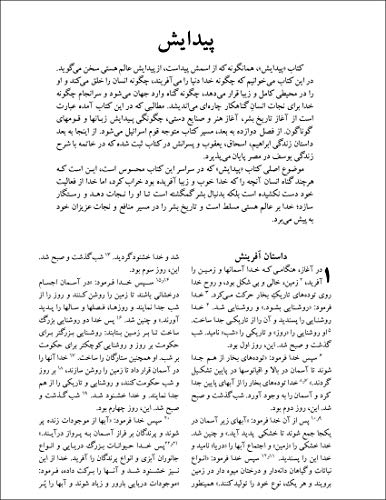 پیدایش
کتاب «پیدایش»، همانگونه که از اسمش پیداست، از پیدایش عالم هستی سخن می‌گوید.
در این کتاب می‌خوانیم که چگونه خدا دنیا را می‌آفریند، چگونه انسان را خلق می‌کند و او
را در محیطی کامل و زیبا قرار می‌دهد، چگونه گناه وارد جهان می‌شود و سرانجام چگونه
خدا برای نجات انسان گناهکار چاره‌ای می‌اندیشد. مطالبی که در این کتاب آمده عبارت
است از آغاز تاریخ بشر، آغاز هنر و صنایع دستی، چگونگی پیدایش زبانها و قومهای
گوناگون. از فصل دوازده به بعد، مسیر کتاب متوجه قوم اسرائیل می‌شود. از اینجا به بعد
داستان زندگی ابراهیم، اسحاق، یعقوب و پسرانش در کتاب ثبت شده که در خاتمه با شرح
زندگی یوسف در مصر پایان می‌پذیرد.
موضوع اصلی کتاب «پیدایش» که در سراسر این کتاب محسوس است، این است که
هرچند گناه انسان آنچه را که خدا خوب و زیبا آفریده بود خراب کرد، اما خدا از فعالیت
خود دست نکشیده است بلکه بدنبال بشر گمگشته است تا او را نجات دهد و رستگار
سازد؛ خدا بر عالم هستی مسلط است و تاریخ بشر را در مسیر منافع و نجات عزیزان خود
به پیش می‌برد.
داستان آفرینش
۱ در آغاز، هنگامی که خدا آسمانها و زمین را
آفرید، ۲ زمین، خالی و بی شکل بود، و روح خدا
روی توده‌های تاریک بخار حرکت می‌کرد. ۳ خدا
فرمود: «روشنایی بشود.» و روشنایی شد. ۴ خدا
روشنایی را پسندید و آن را از تاریکی جدا ساخت.
۵ او روشنایی را «روز» و تاریکی را «شب» نامید. شب
گذشت و صبح شد. این، روز اول بود.
۶ سپس خدا فرمود: «توده‌های بخار از هم جدا
شوند تا آسمان در بالا و اقیانوسها در پایین تشکیل
گردند.» ۷و۸ خدا توده‌های بخار را از آبهای پایین جدا
کرد و آسمان را به وجود آورد. شب گذشت و صبح
شد. این، روز دوم بود.
۹و۱۰ پس از آن خدا فرمود: «آبهای زیر آسمان در
یکجا جمع شوند تا خشکی پدید آید.» و چنین شد.
خدا خشکی را «زمین» و اجتماع آبها را «دریا» نامید و
خدا این را پسندید. ۱۱و۱۲ سپس خدا فرمود: «انواع
نباتات و گیاهان دانه‌دار و درختان میوه دار در زمین
برویند و هر یک، نوع خود را تولید کنند.» همینطور
شد و خدا خشنود گردید. ۱۳ شب گذشت و صبح شد.
این، روز سوم بود.
۱۴و۱۵ سپس خدا فرمود: «در آسمان اجسام
درخشانی باشند تا زمین را روشن کنند و روز را از
شب جدا نمایند و روزها، فصلها و سالها را پدید
آورند.» و چنین شد. ۱۶ پس خدا دو روشنایی بزرگ
ساخت تا بر زمین بتابند: روشنایی بزرگتر برای
حکومت بر روز و روشنایی کوچکتر برای حکومت
بر شب. او همچنین ستارگان را ساخت. ۱۷ خدا آنها را
در آسمان قرار داد تا زمین را روشن سازند، ۱۸ بر روز
و شب حکومت کنند، و روشنایی و تاریکی را از هم
جدا نمایند. و خدا خشنود شد. ۱۹ شب گذشت و
صبح شد. این، روز چهارم بود.
۲۰ سپس خدا فرمود: «آبها از موجودات زنده پر
شوند و پرندگان بر فراز آسمان به پرواز درآیند.»
۲۱ پس خدا حیوانات بزرگ دریایی و انواع
جانوران آبزی و انواع پرندگان را آفرید. خدا از این
نیز خشنود شد ۲۲ و آنها را برکت داده، فرمود:
«موجودات دریایی بارور و زیاد شوند و آبها را پُر